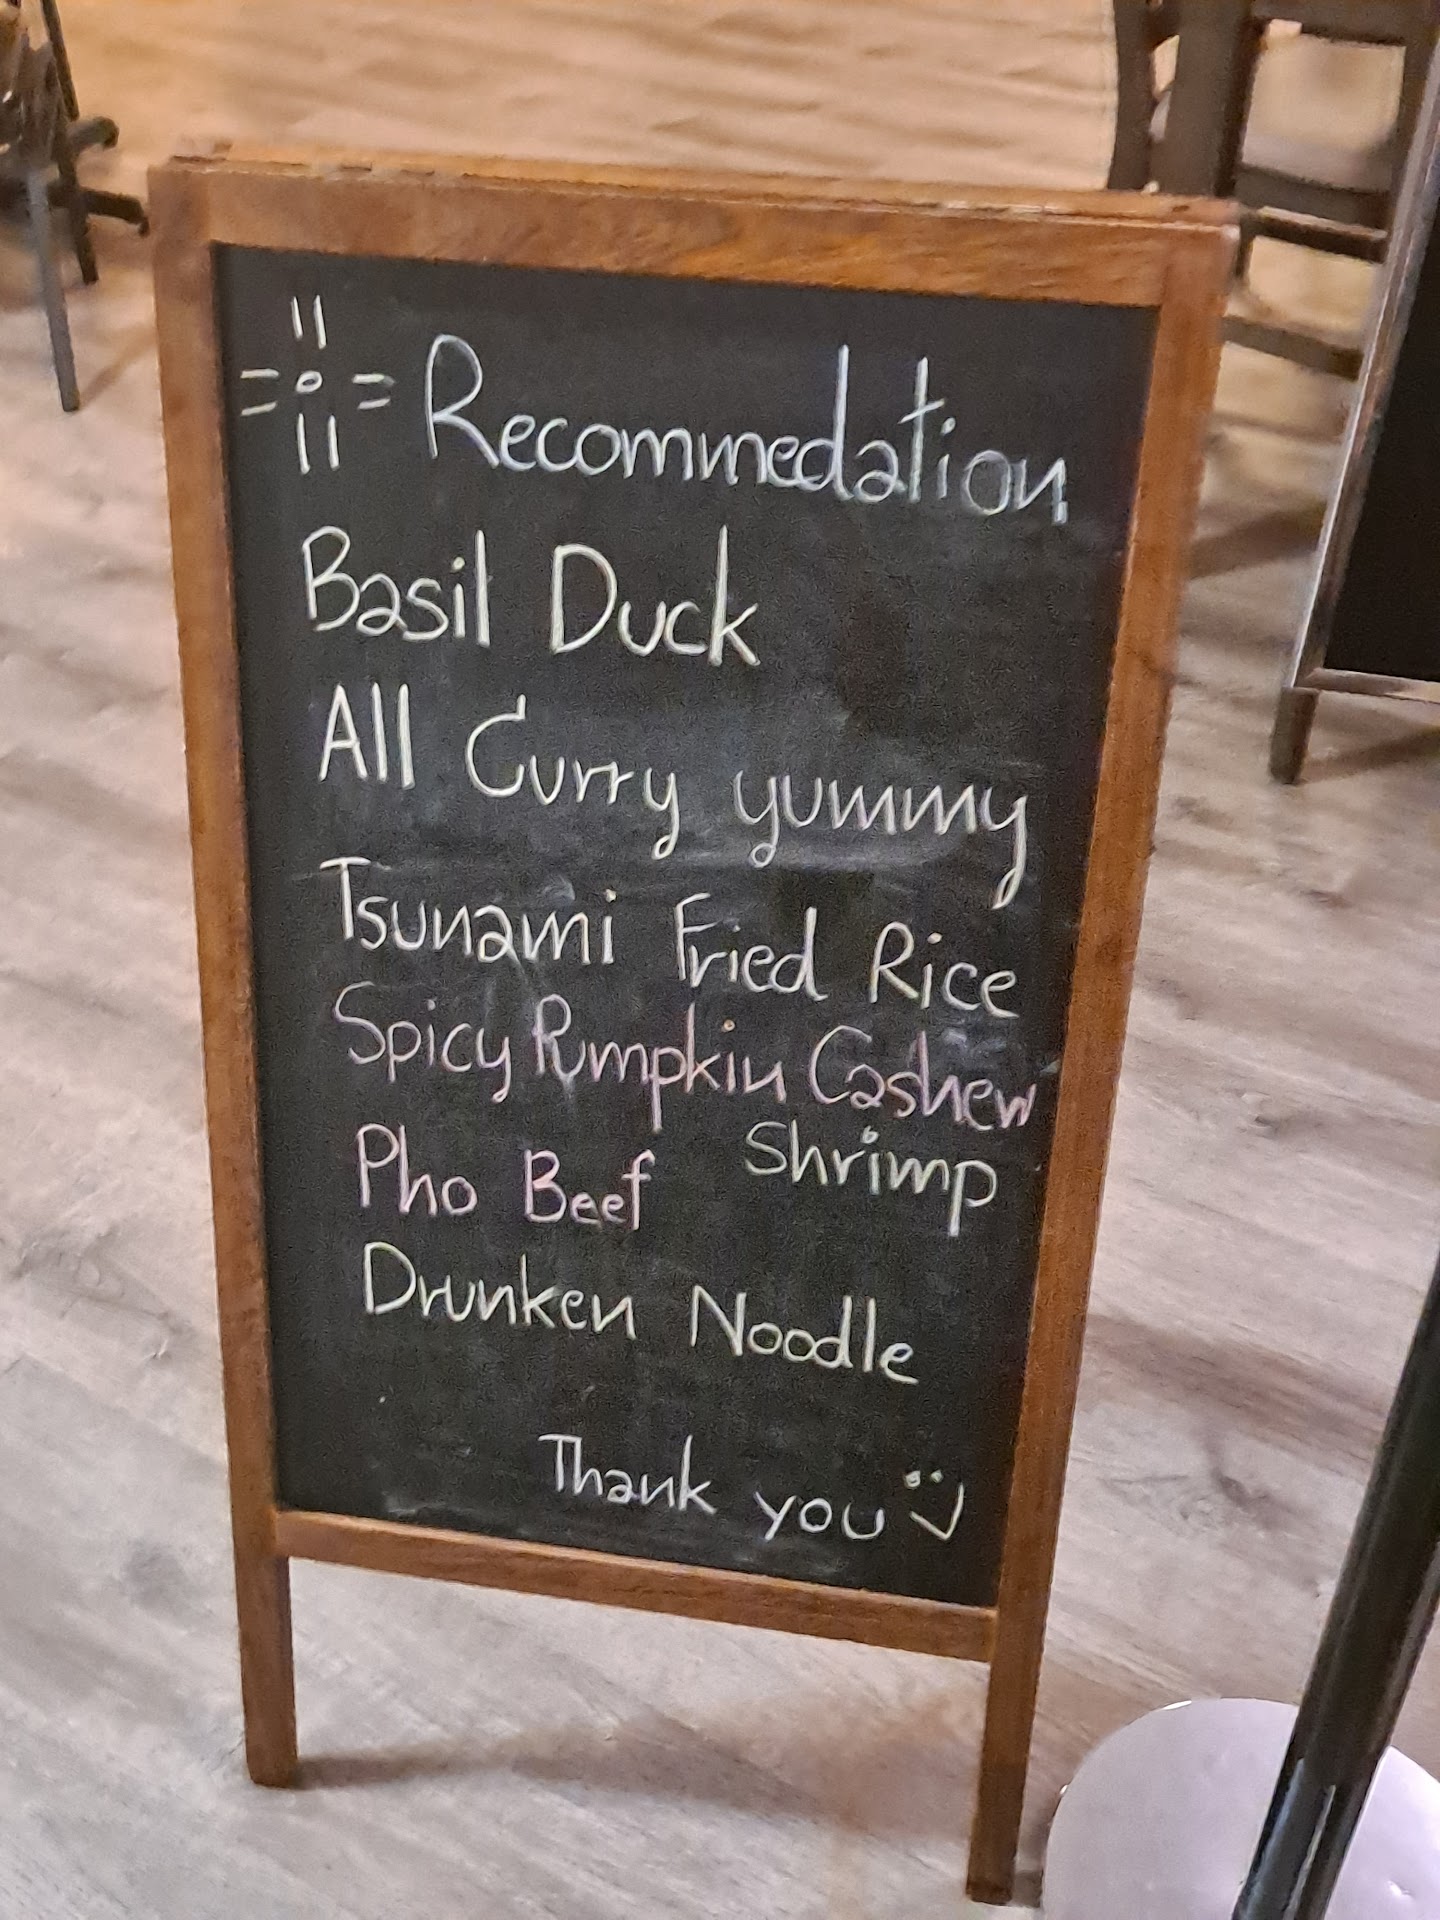 Recommedation
Basil Duck
All Curry yummy
Tsunami Fried Rice
Spicy Pumpkin Cashew
Shrimp
Pho Beef
Drunken Noodle
Thank you